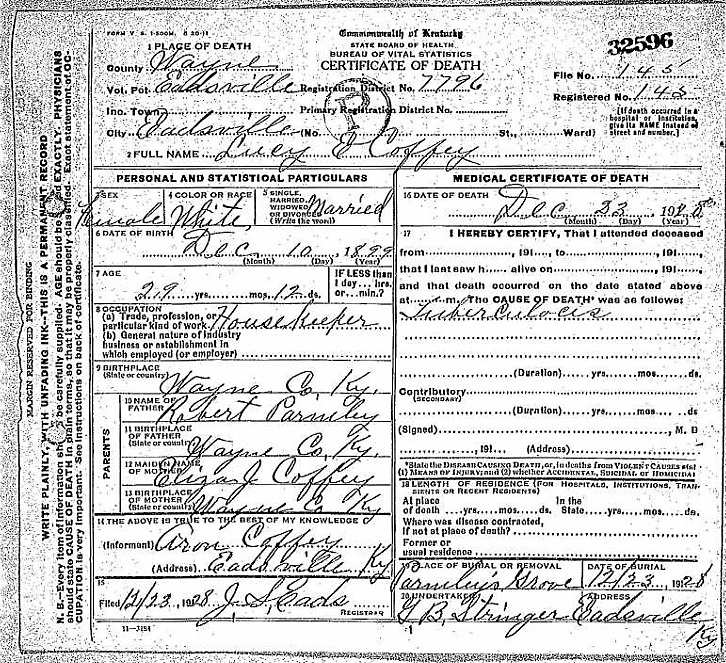 FORM V. S. 1-500M. 8 20-11
Commonwealth of Kentucky
STATE BOARD OF HEALTH
BUREAU OF VITAL STATISTICS
CERTIFICATE OF DEATH
32596
1 PLACE OF DEATH
County Wayne
File No. 145
Vol. Pct. Eadsville Registration District No. 7796
Registered No. 145
Inc. Town Primary Registration District No.
City Eadsville (No. St., Ward)
(If death occurred in a hospital or institution, give its NAME instead of street and number.)
2 FULL NAME Lucy E Coffey
PERSONAL AND STATISTICAL PARTICULARS
3 SEX Female
4 COLOR OR RACE White
5 SINGLE, MARRIED, WIDOWED OR DIVORCED (Write the word) Married
6 DATE OF BIRTH
Dec 10 1899
(Month) (Day) (Year)
7 AGE
29 yrs. mos. 12 ds.
IF LESS than 1 day... hrs. or... min.?
8 OCCUPATION
(a) Trade, profession, or particular kind of work Housekeeper
(b) General nature of industry business or establishment in which employed (or employer)
9 BIRTHPLACE (State or country) Wayne Co. Ky.
PARENTS
10 NAME OF FATHER Robert Parmley
11 BIRTHPLACE OF FATHER (State or country) Wayne Co. Ky.
12 MAIDEN NAME OF MOTHER Eliza J. Coffey
13 BIRTHPLACE OF MOTHER (State or country) Wayne Co Ky
14 THE ABOVE IS TRUE TO THE BEST OF MY KNOWLEDGE
(Informant) Aron Coffey
(Address) Eadsville Ky
15
Filed 12/23, 1928 J. S. Eads
REGISTRAR
11-3184
MEDICAL CERTIFICATE OF DEATH
16 DATE OF DEATH
Dec 23 1928
(Month) (Day) (Year)
17 I HEREBY CERTIFY, That I attended deceased
from , 191 to , 191
that I last saw h alive on , 191
and that death occurred on the date stated above
at m. The CAUSE OF DEATH* was as follows:
Tuberculocis
(Duration) yrs. mos. ds.
Contributory
(SECONDARY)
(Duration) yrs. mos. ds
(Signed) , M. D
, 191 (Address)
*State the DISEASE CAUSING DEATH, or, in deaths from VIOLENT CAUSES stat
(1) MEANS OF INJURY; and (2) whether ACCIDENTAL, SUICIDAL or HOMICIDAL
18 LENGTH OF RESIDENCE (FOR HOSPITALS, INSTITUTIONS, TRANSIENTS OR RECENT RESIDENTS)
At place of death yrs. mos. ds. In the State yrs. mos. ds.
Where was disease contracted, If not at place of death?
Former or usual residence
PLACE OF BURIAL OR REMOVAL Parmley's Grove
DATE OF BURIAL 12/23 1928
20 UNDERTAKER G B. Stringer
ADDRESS Eadsville Ky
MARGIN RESERVED FOR BINDING
WRITE PLAINLY, WITH UNFADING INK—THIS IS A PERMANENT RECORD
N. B.—Every item of information should be carefully supplied. AGE should be stated EXACTLY. PHYSICIANS
should state CAUSE OF DEATH in plain terms, so that it may be properly classified. Exact statement of OC-
CUPATION is very important. See instructions on back of certificate.